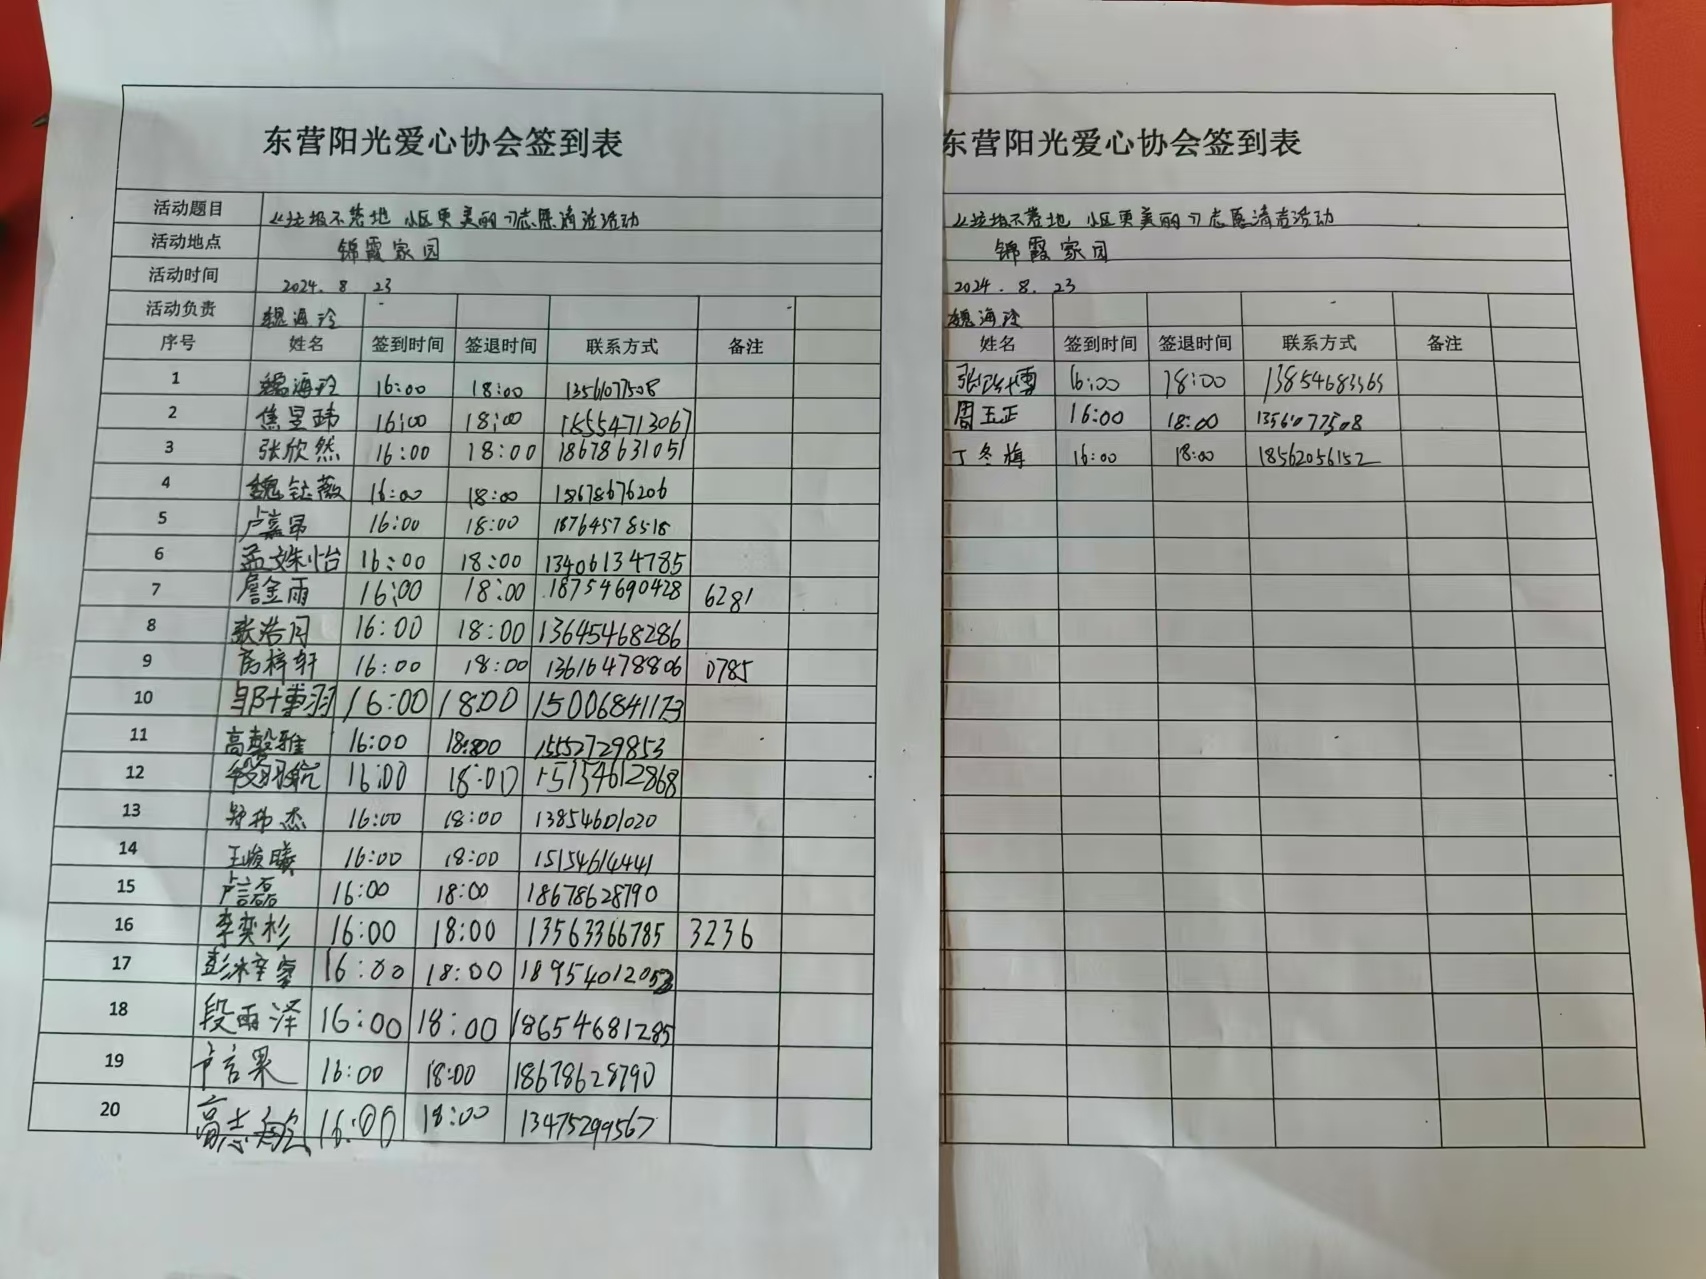 东营阳光爱心协会签到表
活动题目 《垃圾不落地 小区更美丽》志愿清洁活动
活动地点 锦霞家园
活动时间 2024.8.23
活动负责 魏海玲
序号 姓名 签到时间 签退时间 联系方式 备注
1 魏海玲 16:00 18:00 13561077508
2 焦昱玮 16:00 18:00 15554713067
3 张欣然 16:00 18:00 18678631051
4 魏钰薇 16:00 18:00 18678676206
5 卢嘉 16:00 18:00 18764578518
6 孟姝怡 16:00 18:00 13406134785
7 詹金雨 16:00 18:00 18754690428 6281
8 张浩月 16:00 18:00 13645468286
9 房梓轩 16:00 18:00 13616478806 0785
10 16:00 18:00 15006841173
11 高馨雅 16:00 18:00 15552729853
12 段羽航 16:00 18:00 15154612868
13 杰 16:00 18:00 13854601020
14 王峻曦 16:00 18:00 15154614441
15 卢言磊 16:00 18:00 18678628790
16 李奕杉 16:00 18:00 13563366785 3236
17 彭 16:00 18:00 18954012053
18 段雨泽 16:00 18:00 18654681285
19 卢言果 16:00 18:00 18678628790
20 高志 16:00 18:00 13475299567
东营阳光爱心协会签到表
《垃圾不落地 小区更美丽》志愿清洁活动
锦霞家园
2024.8.23
魏海玲
姓名 签到时间 签退时间 联系方式 备注
张 雪 16:00 18:00 13854683565
周玉正 16:00 18:00 13561077508
丁冬梅 16:00 18:00 18562056152